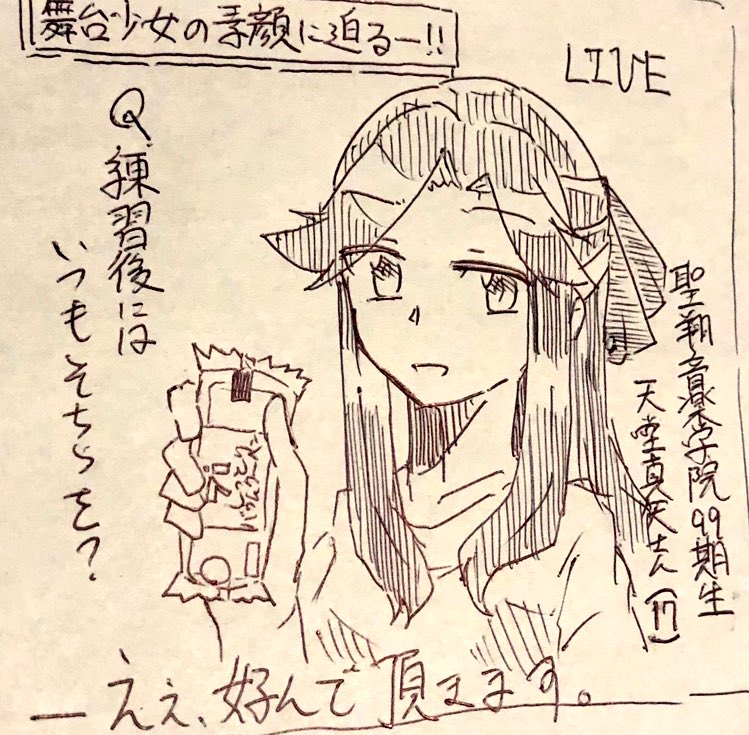 舞台少女の素顔に迫るー!!
LIVE
Q.練習後には
いつもそちらを?
聖翔音楽学院99期生
天堂真矢さん(17)
プロ
ばうんどこーん
―ええ、好んで頂きます。